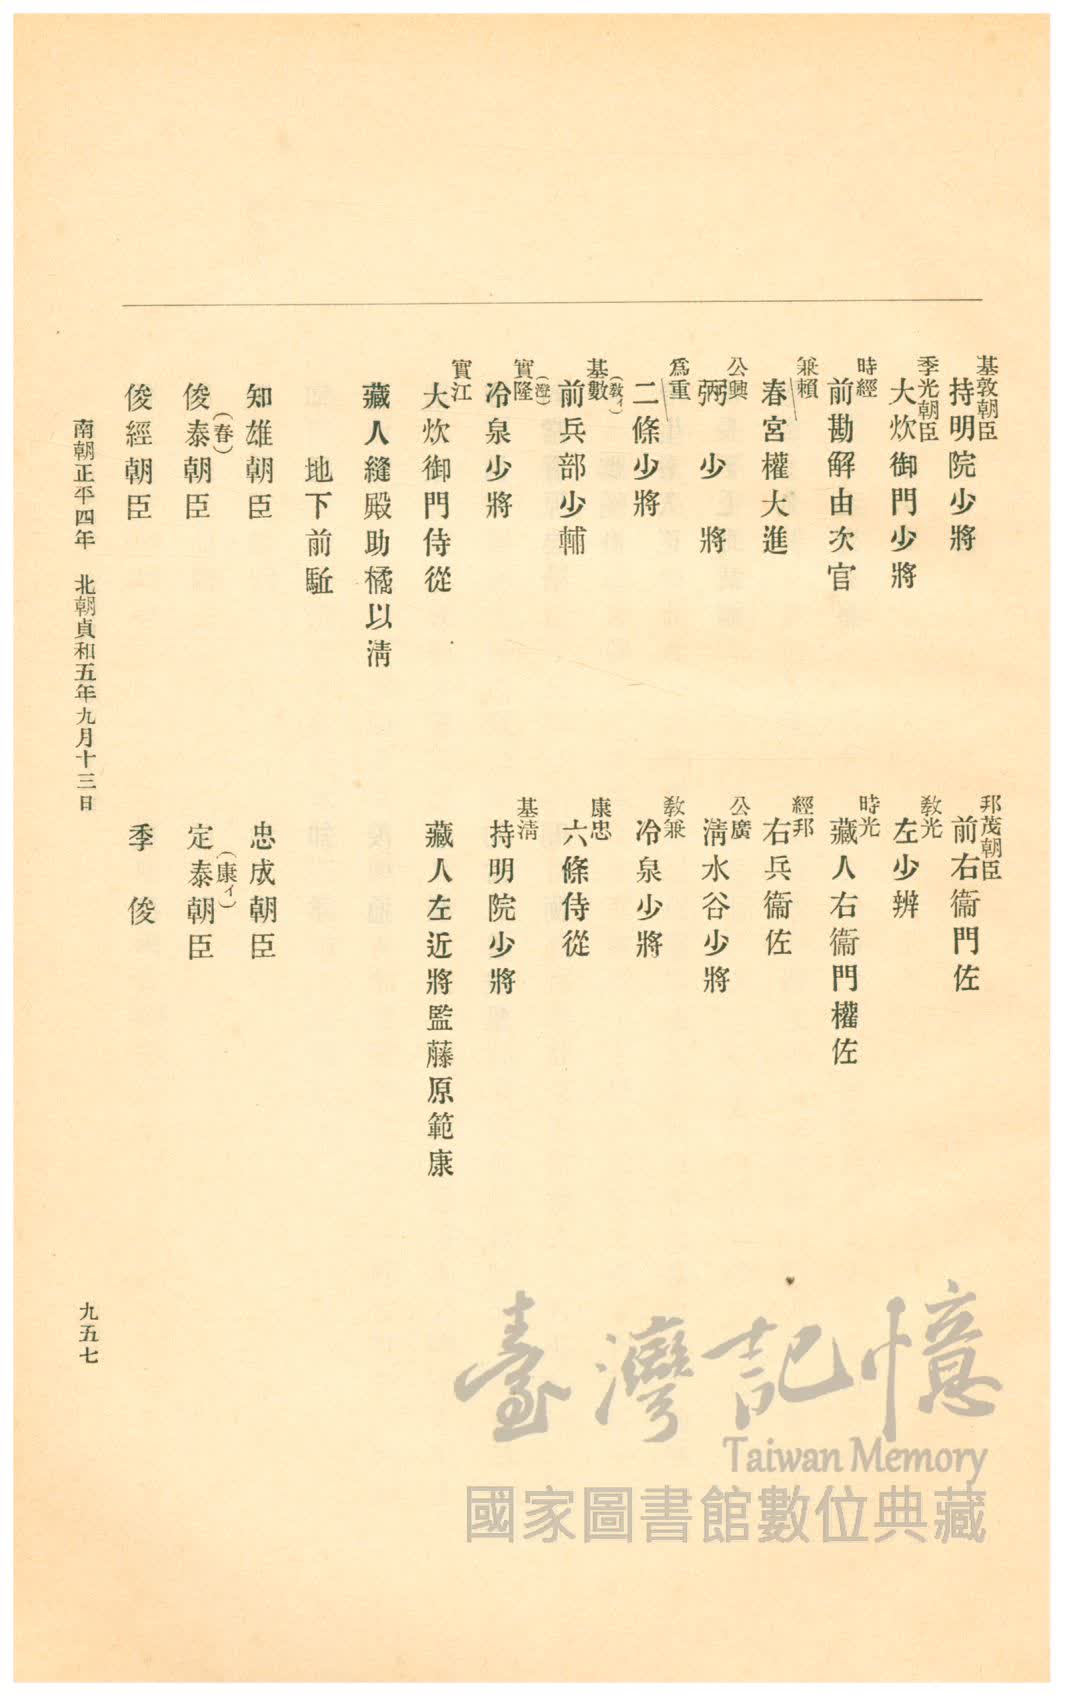 基敦朝臣
持明院少將
邦茂朝臣
前右衞門佐
季光朝臣
大炊御門少將
教光
左少辨
時經
前勘解由次官
時光
藏人右衞門權佐
兼賴
春宮權大進
經邦
右兵衞佐
公興
弼少將
公廣
淸水谷少將
爲重
二條少將
教兼
冷泉少將
基數(敎イ)
前兵部少輔
康忠
六條侍從
實隆(澄)
冷泉少將
基淸
持明院少將
實江
大炊御門侍從
藏人左近將監藤原範康
藏人縫殿助橘以淸
地下前駈
知雄朝臣
忠成朝臣
(春)
俊泰朝臣
(康イ)
定泰朝臣
俊經朝臣
季俊
南朝正平四年 北朝貞和五年九月十三日
九五七
臺灣記憶
Taiwan Memory
國家圖書館數位典藏